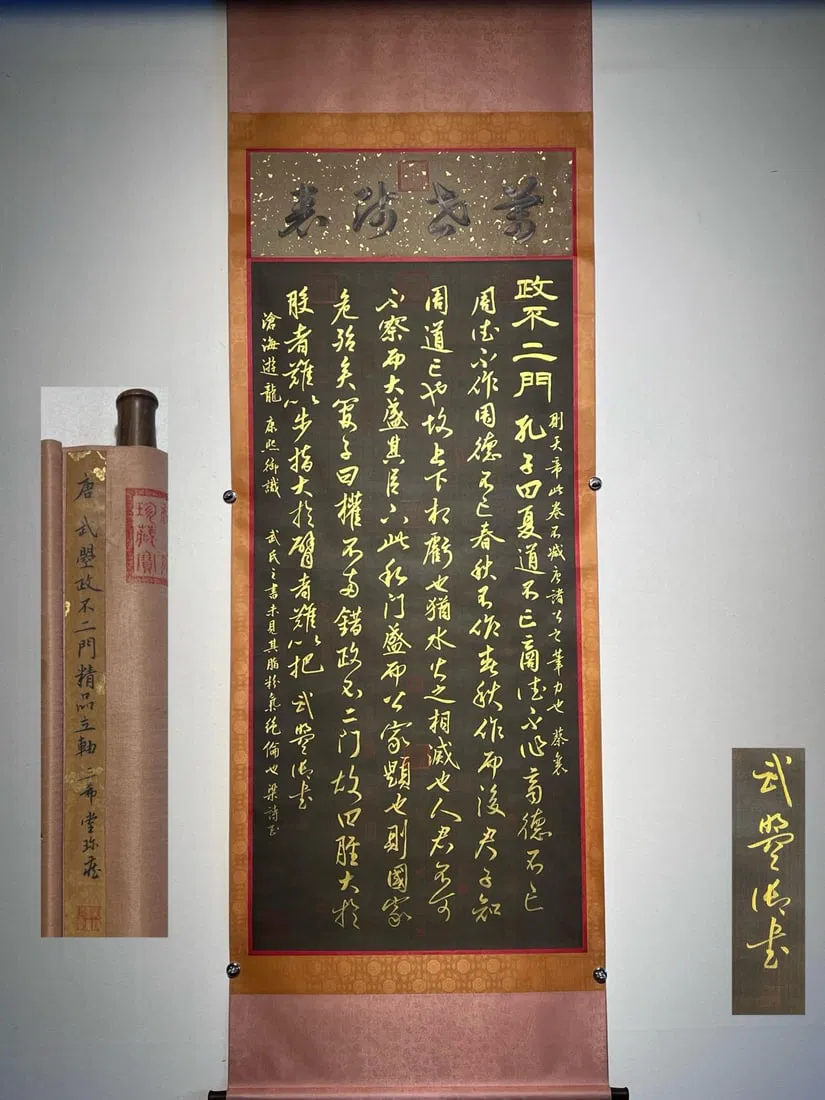 萬世師表
則天帝此卷不減唐諸公之筆力也 蔡襄
政不二門 孔子曰夏道不亡商德不作商德不亡
周德不作周德不亡春秋不作春秋作而後君子知
周道亡也故上下相虧也猶水火之相滅也人君不可
不察而大盛其臣下此私門盛而公家題也則國家
危殆矣管子曰權不兩錯政不二門故曰脛大於
股者難以步指大於臂者難以把 武曌御書
滄海遊龍 康熙御識 武氏之書未見其脂粉氣絕倫也 梁詩正
唐 武曌政不二門精品立軸 三希堂珍藏
珍藏寶
武曌御書